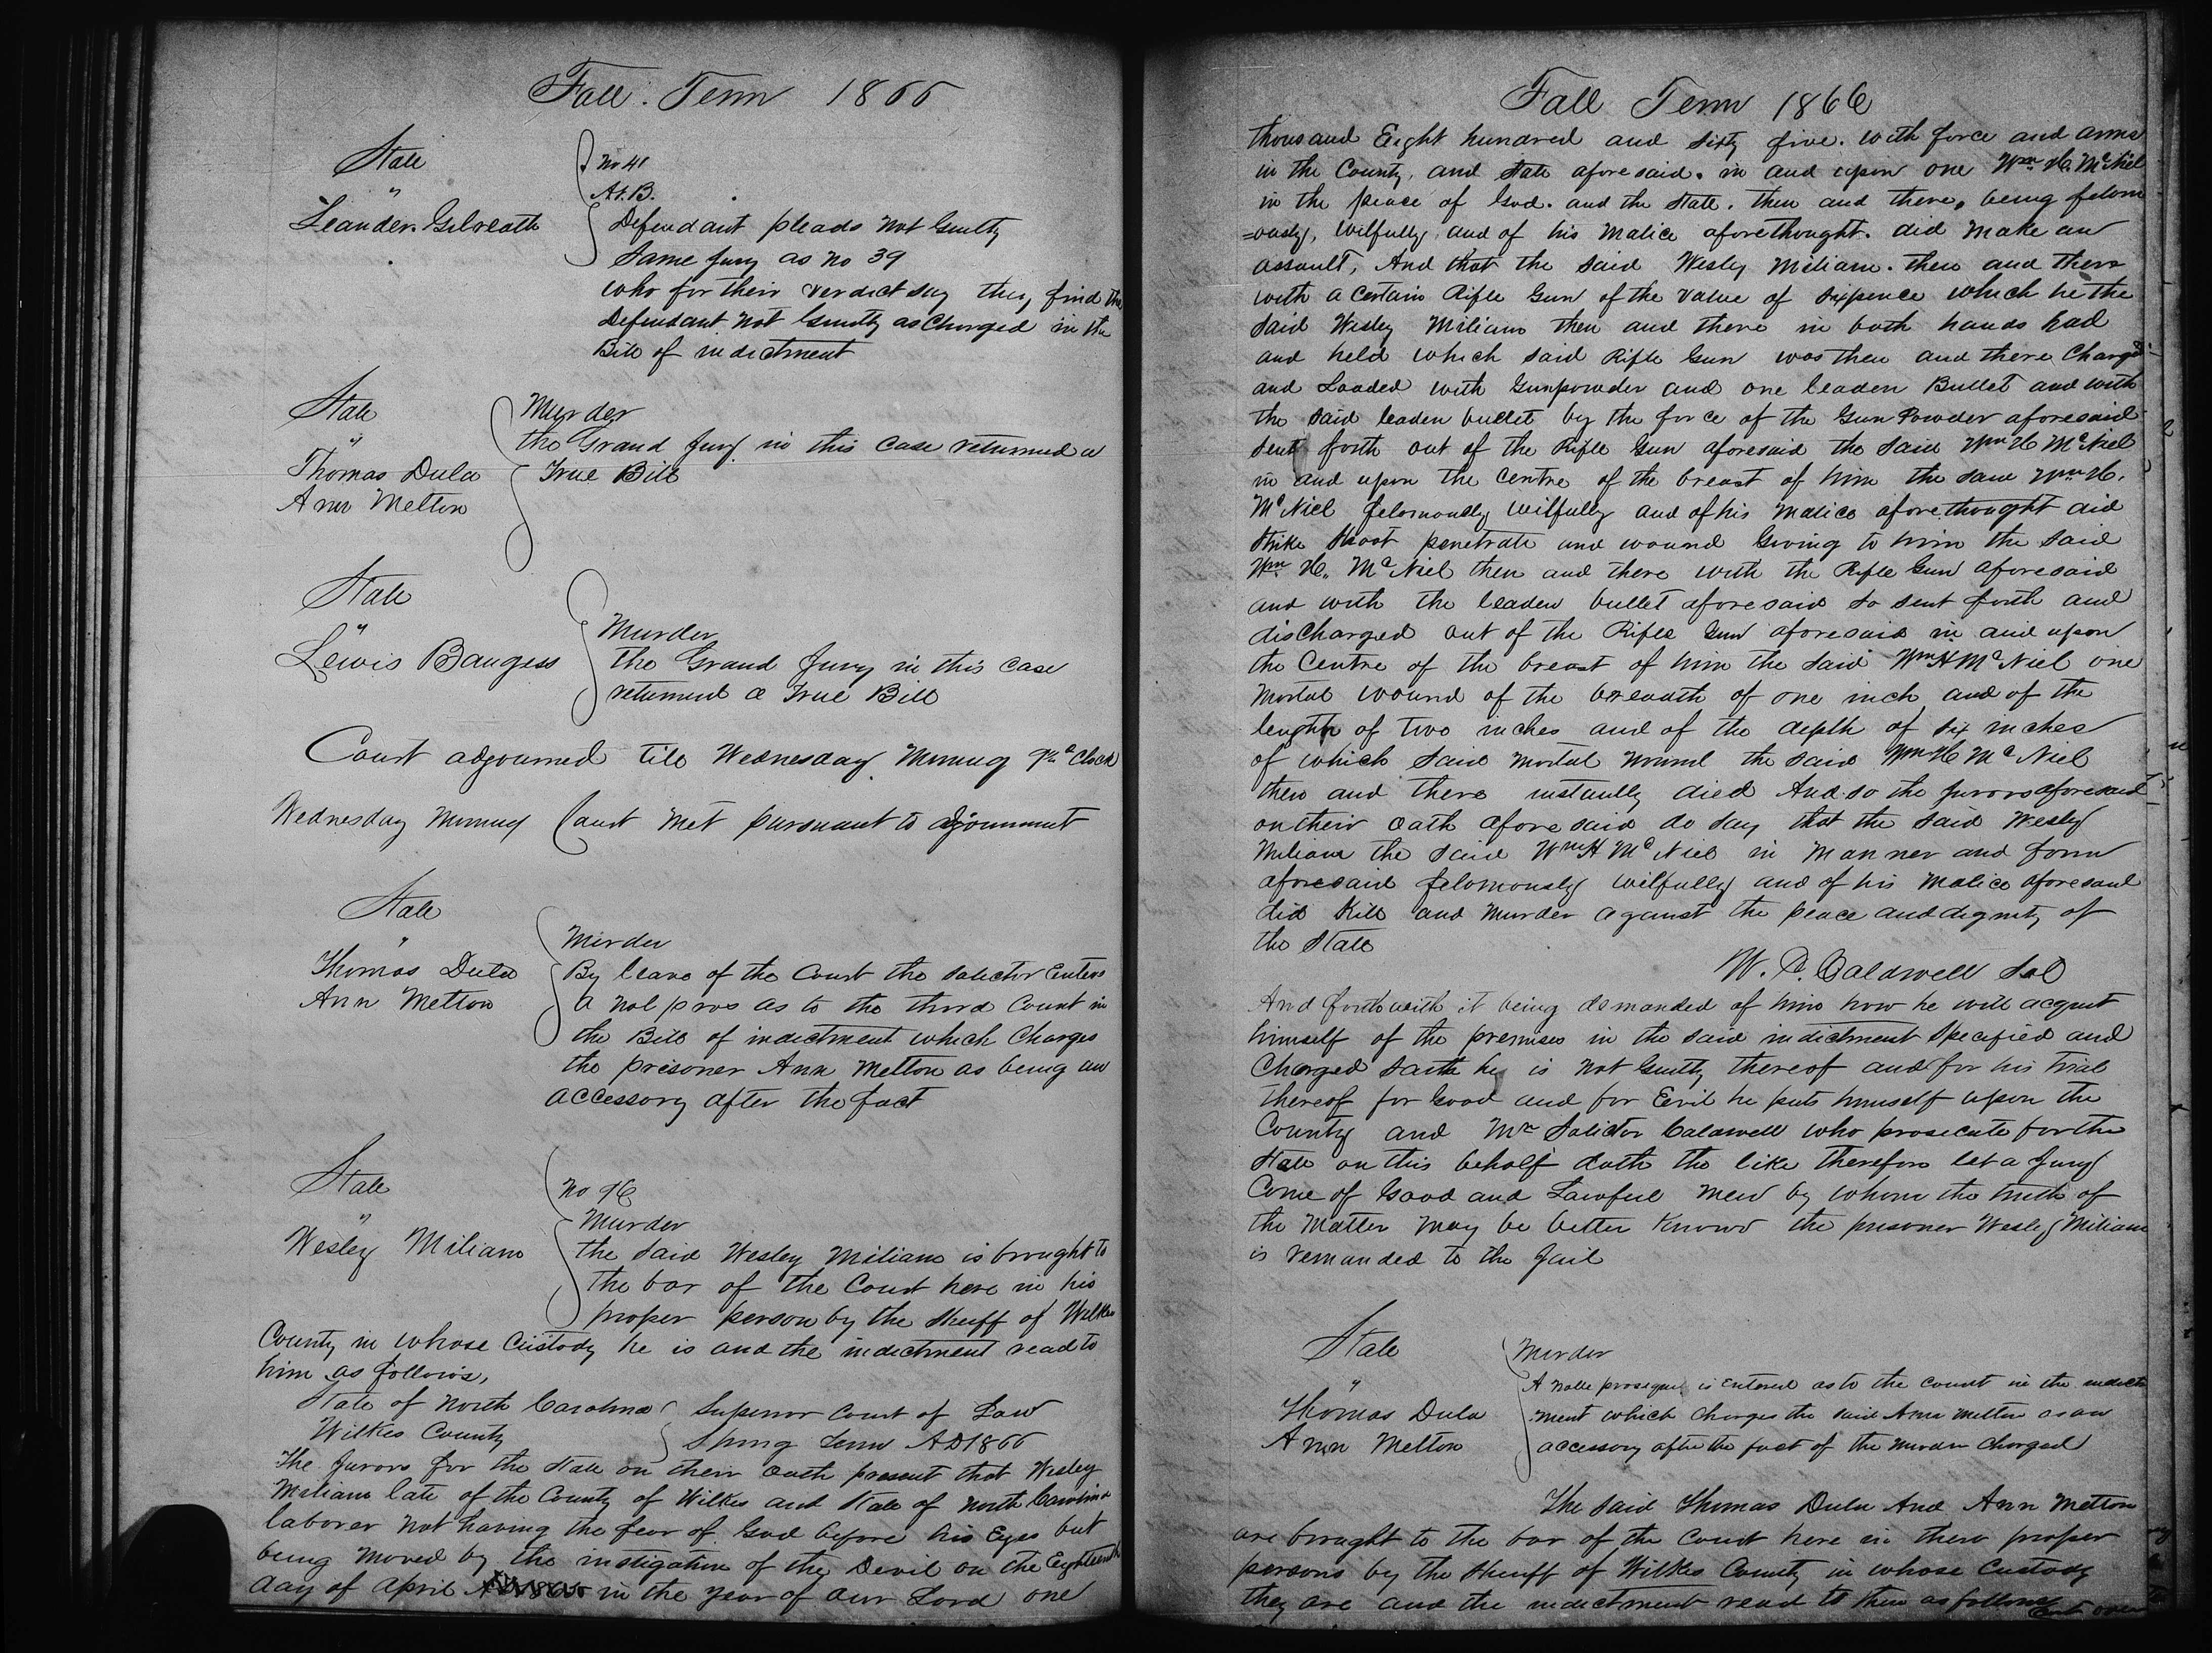 Fall Term 1866
State
"
Leander Gilreath
No 41
A&B.
Defendant pleads Not Guilty
Same Jury as No 39
who for their verdict say they find the
Defendant Not Guilty as Charged in the
Bill of indictment
State
"
Thomas Dula
Ann Melton
Murder
the Grand Jury in this Case returned a
True Bill
State
"
Lewis Baugess
Murder
the Grand Jury in this Case
returned a True Bill
Court adjourned till Wednesday Morning 9 o Clock
Wednesday Morning Court Met pursuant to adjournment
State
"
Thomas Dula
Ann Melton
Murder
By leave of the Court the Solicitor Enters
a nol pros as to the third Count in
the Bill of indictment which Charges
the prisoner Ann Melton as being an
accessory after the fact
State
"
Wesley Miliam
No 96
Murder
the said Wesley Miliam is brought to
the bar of the Court here in his
proper person by the Sheriff of Wilkes
County in whose Custody he is and the indictment read to
him as follows,
State of North Carolina
Wilkes County
Superior Court of Law
Spring Term AD 1866
The Jurors for the State on their oath present that Wesley
Miliam late of the County of Wilkes and State of North Carolina
laborer not having the fear of God before his Eyes but
being moved by the instigation of the Devil on the Eighteenth
day of April in the year of our Lord one
Fall Term 1866
thousand Eight hundred and sixty five. with force and arms
in the County, and State aforesaid. in and upon one Wm. H. McNiel
in the peace of God. and the State. then and there, being feloni
=ously, wilfully, and of his Malice aforethought. did Make an
assault, And that the said Wesley Miliam. then and there
with a certain Rifle Gun of the value of sixpence which he the
said Wesley Miliam then and there in both hands had
and held which said Rifle Gun was then and there Charged
and Loaded with Gunpowder and one leaden Bullet and with
the said leaden bullet by the force of the Gun Powder aforesaid
sent forth out of the Rifle Gun aforesaid the said Wm H McNiel
in and upon the Centre of the breast of him the same Wm H.
McNiel feloniously wilfully and of his malice aforethought did
Strike Shoot penetrate and wound Giving to him the said
Wm H. McNiel then and there with the Rifle Gun aforesaid
and with the leaden bullet aforesaid so sent forth and
discharged out of the Rifle Gun aforesaid in and upon
the Centre of the breast of him the said Wm H McNiel one
Mortal wound of the breadth of one inch and of the
length of two inches and of the depth of six inches
of which said Mortal wound the said Wm H McNiel
then and there instantly died And so the Jurors aforesaid
on their oath aforesaid do say that the said Wesley
Miliam the said Wm H McNiel in Manner and form
aforesaid feloniously wilfully and of his Malice aforesaid
did Kill and Murder against the peace and dignity of
the State
W. P. Caldwell Sol
And forthwith it being demanded of him how he will acquit
himself of the premises in the said indictment Specified and
Charged saith he is Not Guilty thereof and for his trial
thereof for Good and for Eevil he puts himself upon the
County and Mr Solicitor Caldwell who prosecute for the
State on this behalf doth the like therefore let a Jury
Come of Good and Lawful Men by whom the truth of
the Matter May be better Known the prisoner Wesley Miliam
is remanded to the Jail
State
"
Thomas Dula
Ann Melton
Murder
A Nolle prosequi is Entered as to the count in the indict
ment which charges the said Ann Melton as an
accessory after the fact of the Murder Charged
The said Thomas Dula And Ann Melton
are brought to the bar of the Court here in their proper
persons by the Sheriff of Wilkes County in whose Custody
they are and the indictment read to them as follows